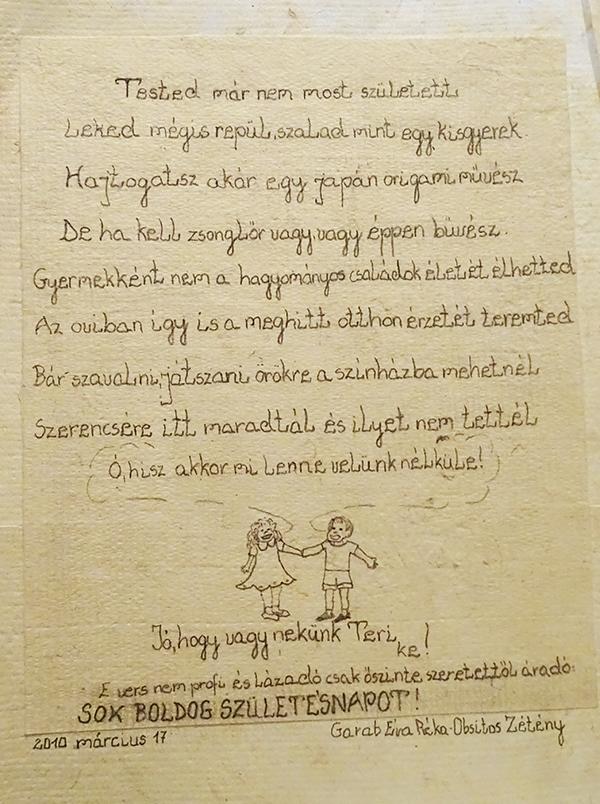 Tested már nem most született
Lelked mégis repül, szalad mint egy kisgyerek.
Hajtogatsz akár egy japán origami művész
De ha kell zsonglőr vagy, vagy éppen bűvész.
Gyermekként nem a hagyományos családok életét élhetted
Az oviban így is a meghitt otthon érzetét teremted
Bár szavalni, játszani örökre a színházba mehetnél
Szerencsére itt maradtál és ilyet nem tettél
Ó, hisz akkor mi lenne velünk nélküle!
Jó, hogy vagy nekünk Terike!
E vers nem profi és lázadó csak őszinte szeretettől áradó:
SOK BOLDOG SZÜLETÉSNAPOT!
2010 március 17
Garab Éva Réka-Obsitos Zétény